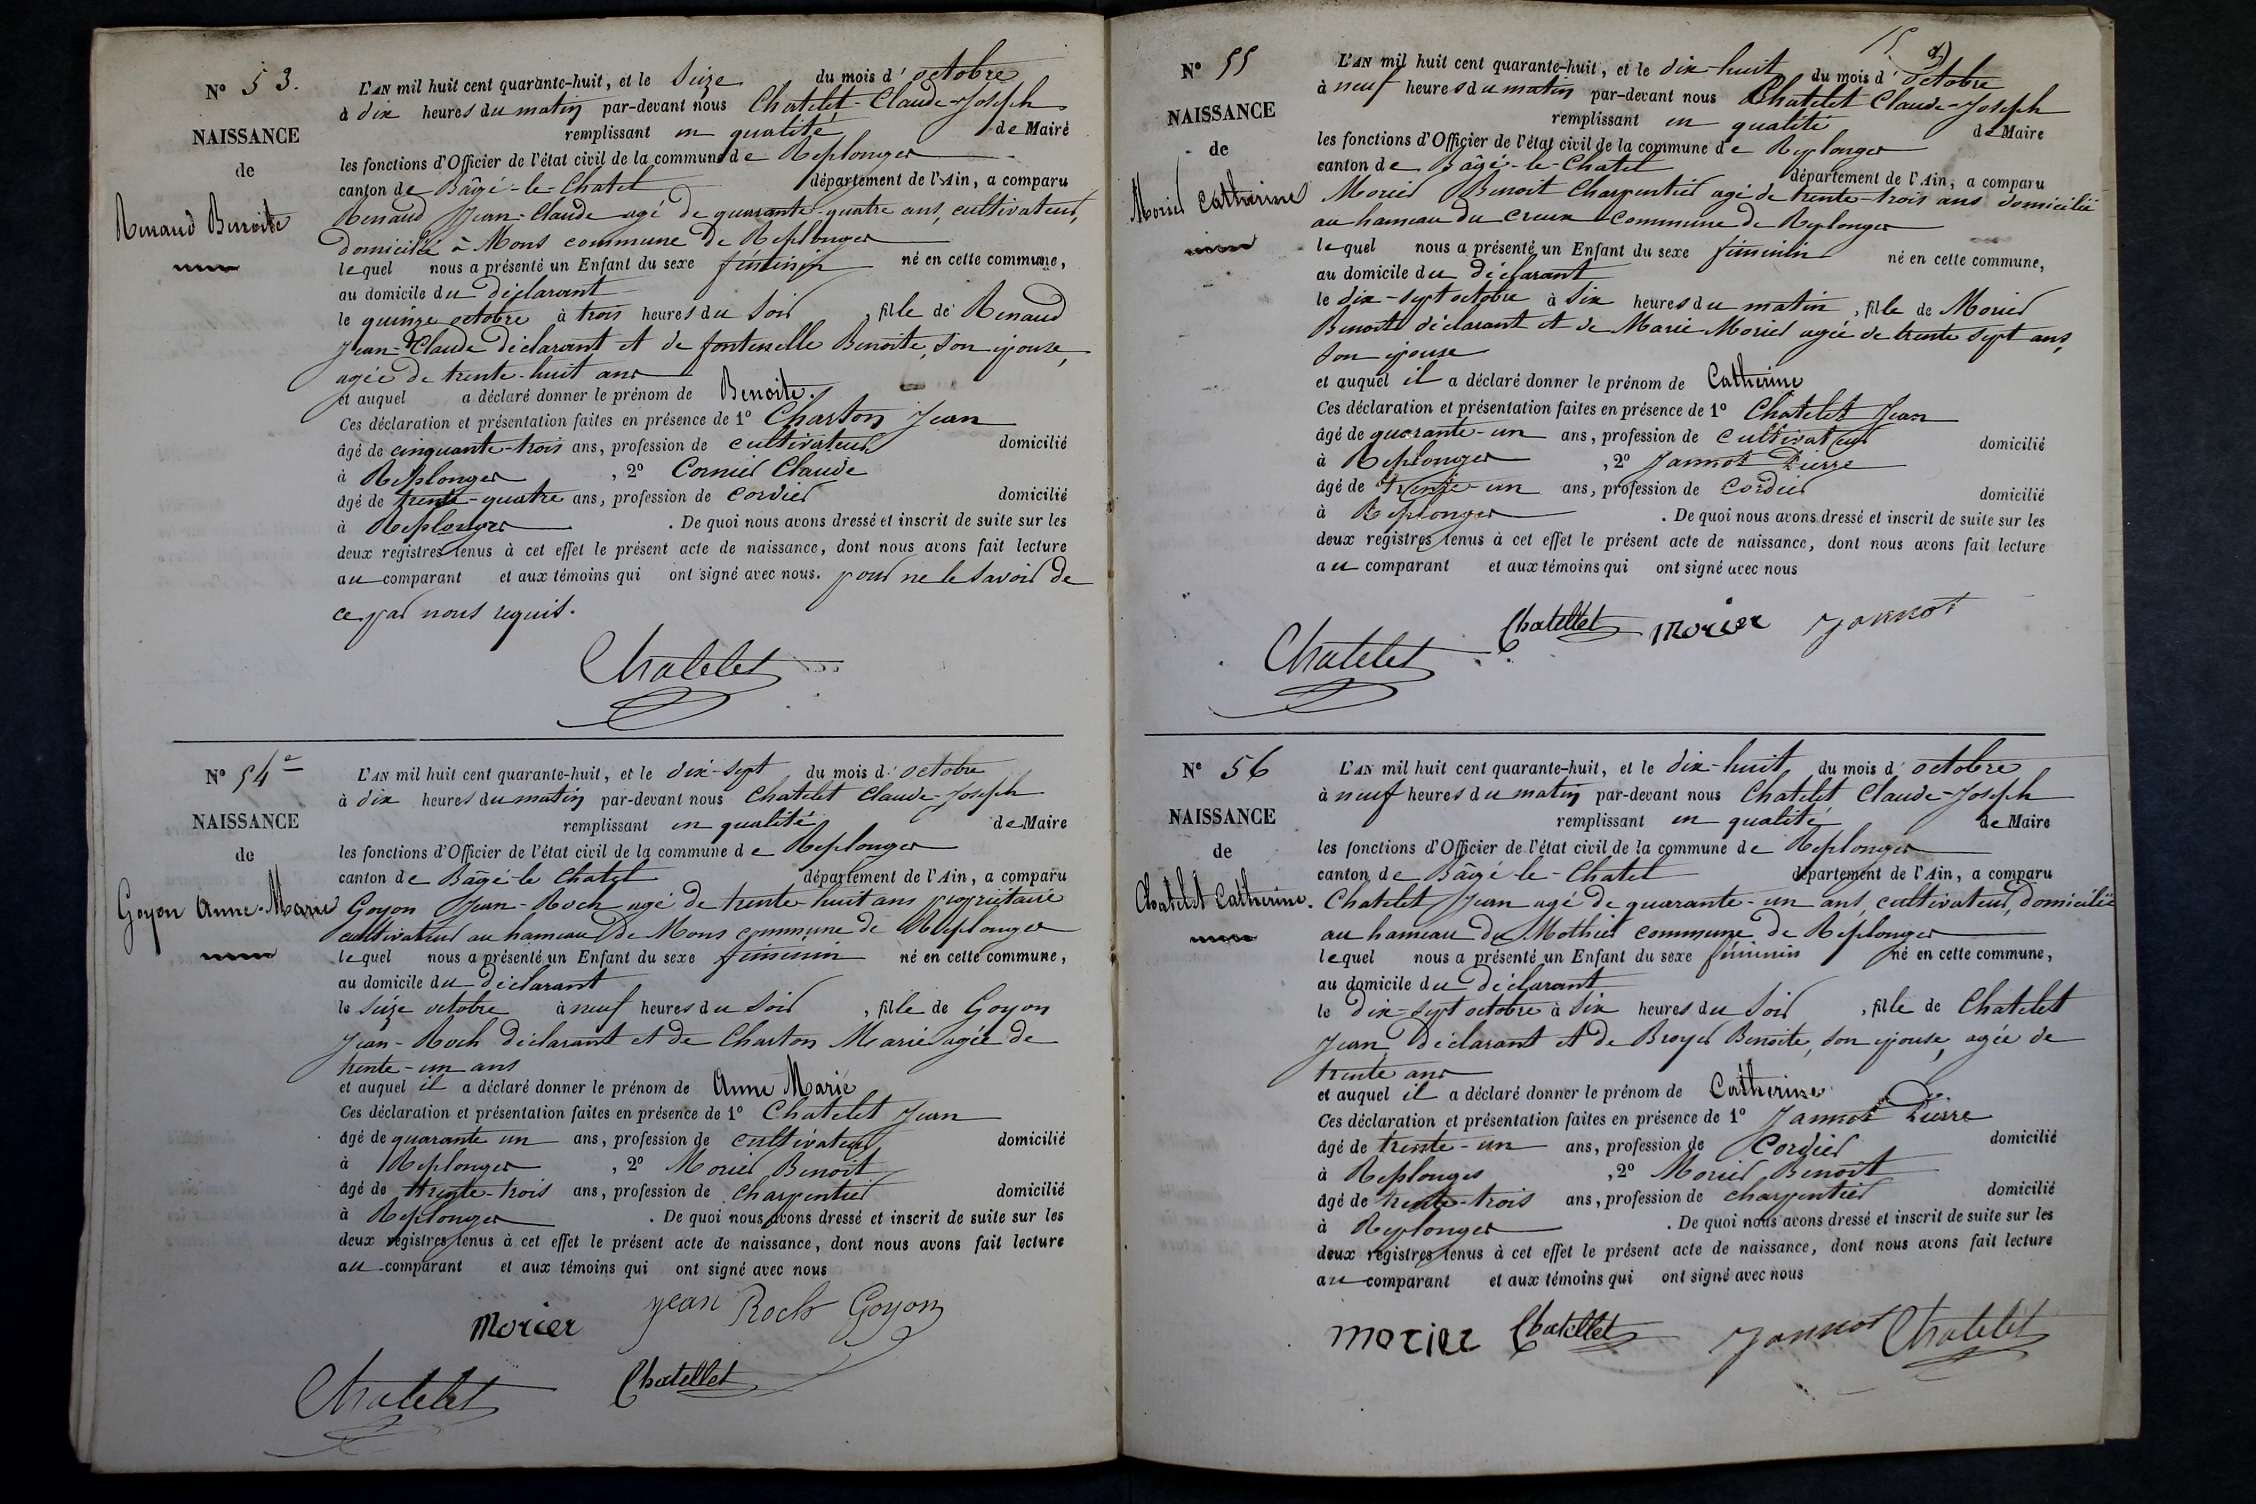 N° 53.
NAISSANCE
de
Renaud Benoite
L'AN mil huit cent quarante-huit, et le Seize du mois d'octobre
à dix heures du matin par-devant nous Chatelet-Claude-Joseph
remplissant en qualité de Maire
les fonctions d'Officier de l'état civil de la commune de Replonges
canton de Bâgé-le-Chatel département de l'Ain, a comparu
Renaud Jean-Claude agé de quarante-quatre ans, cultivateur,
domicilié à Mons commune de Replonges
lequel nous a présenté un Enfant du sexe féminin né en cette commune,
au domicile du déclarant
le quinze octobre à trois heures du Soir, fille de Renaud
Jean-Claude déclarant et de fontenelle Benoite, son épouse,
agée de trente-huit ans
et auquel a déclaré donner le prénom de Benoite.
Ces déclaration et présentation faites en présence de 1° Charton Jean
âgé de cinquante-trois ans, profession de cultivateur domicilié
à Replonges, 2° Cornier Claude
âgé de trente-quatre ans, profession de cordier domicilié
à Replonges. De quoi nous avons dressé et inscrit de suite sur les
deux registres tenus à cet effet le présent acte de naissance, dont nous avons fait lecture
au comparant et aux témoins qui ont signé avec nous. pour ne le savoir de
ce par nous requis.
Chatelet
N° 54
NAISSANCE
de
Goyon Anne-Marie
L'AN mil huit cent quarante-huit, et le dix-sept du mois d'octobre
à dix heures du matin par-devant nous Chatelet Claude-Joseph
remplissant en qualité de Maire
les fonctions d'Officier de l'état civil de la commune de Replonges
canton de Bâgé-le Chatel département de l'Ain, a comparu
Goyon Jean-Roch agé de trente-huit ans propriétaire
cultivateur au hameau de Mons commune de Replonges
lequel nous a présenté un Enfant du sexe féminin né en cette commune,
au domicile du déclarant
le Seize octobre à neuf heures du Soir, fille de Goyon
Jean-Roch déclarant et de Charton Marie agée de
trente-un ans
et auquel il a déclaré donner le prénom de Anne Marie
Ces déclaration et présentation faites en présence de 1° Chatelet Jean
âgé de quarante un ans, profession de cultivateur domicilié
à Replonges, 2° Morier Benoit
âgé de trente-trois ans, profession de charpentier domicilié
à Replonges. De quoi nous avons dressé et inscrit de suite sur les
deux registres tenus à cet effet le présent acte de naissance, dont nous avons fait lecture
au comparant et aux témoins qui ont signé avec nous
Morier jean Roch Goyon
Chatelet Chatellet
15
N° 55
NAISSANCE
de
Morier Catherine
L'AN mil huit cent quarante-huit, et le dix-huit du mois d'octobre
à neuf heures du matin par-devant nous Chatelet Claude-Joseph
remplissant en qualité de Maire
les fonctions d'Officier de l'état civil de la commune de Replonges
canton de Bâgé-le-Chatel département de l'Ain, a comparu
Morier Benoit Charpentier agé de trente-trois ans domicilié
au hameau du Creux commune de Replonges
lequel nous a présenté un Enfant du sexe féminin né en cette commune,
au domicile du déclarant
le dix-sept octobre à Six heures du matin, fille de Morier
Benoit déclarant et de Marie Morier agée de trente sept ans,
son épouse
et auquel il a déclaré donner le prénom de Catherine
Ces déclaration et présentation faites en présence de 1° Chatelet Jean
âgé de quarante-un ans, profession de cultivateur domicilié
à Replonges, 2° Jannot Pierre
âgé de trente-un ans, profession de Cordier domicilié
à Replonges. De quoi nous avons dressé et inscrit de suite sur les
deux registres tenus à cet effet le présent acte de naissance, dont nous avons fait lecture
au comparant et aux témoins qui ont signé avec nous
Chatellet Morier Jannot
Chatelet
N° 56
NAISSANCE
de
Chatelet Catherine.
L'AN mil huit cent quarante-huit, et le dix-huit du mois d'octobre
à neuf heures du matin par-devant nous Chatelet Claude-Joseph
remplissant en qualité de Maire
les fonctions d'Officier de l'état civil de la commune de Replonges
canton de Bâgé-le-Chatel département de l'Ain, a comparu
Chatelet Jean agé de quarante-un ans, cultivateur, domicilié
au hameau du Mothier commune de Replonges
lequel nous a présenté un Enfant du sexe féminin né en cette commune,
au domicile du déclarant
le dix-sept octobre à Six heures du Soir, fille de Chatelet
Jean, déclarant et de Broyer Benoite, son épouse, agée de
trente ans
et auquel il a déclaré donner le prénom de Catherine
Ces déclaration et présentation faites en présence de 1° Jannot Pierre
âgé de trente-un ans, profession de Cordier domicilié
à Replonges, 2° Morier Benoit
âgé de trente-trois ans, profession de charpentier domicilié
à Replonges. De quoi nous avons dressé et inscrit de suite sur les
deux registres tenus à cet effet le présent acte de naissance, dont nous avons fait lecture
au comparant et aux témoins qui ont signé avec nous
morier Chatellet Jannot Chatelet